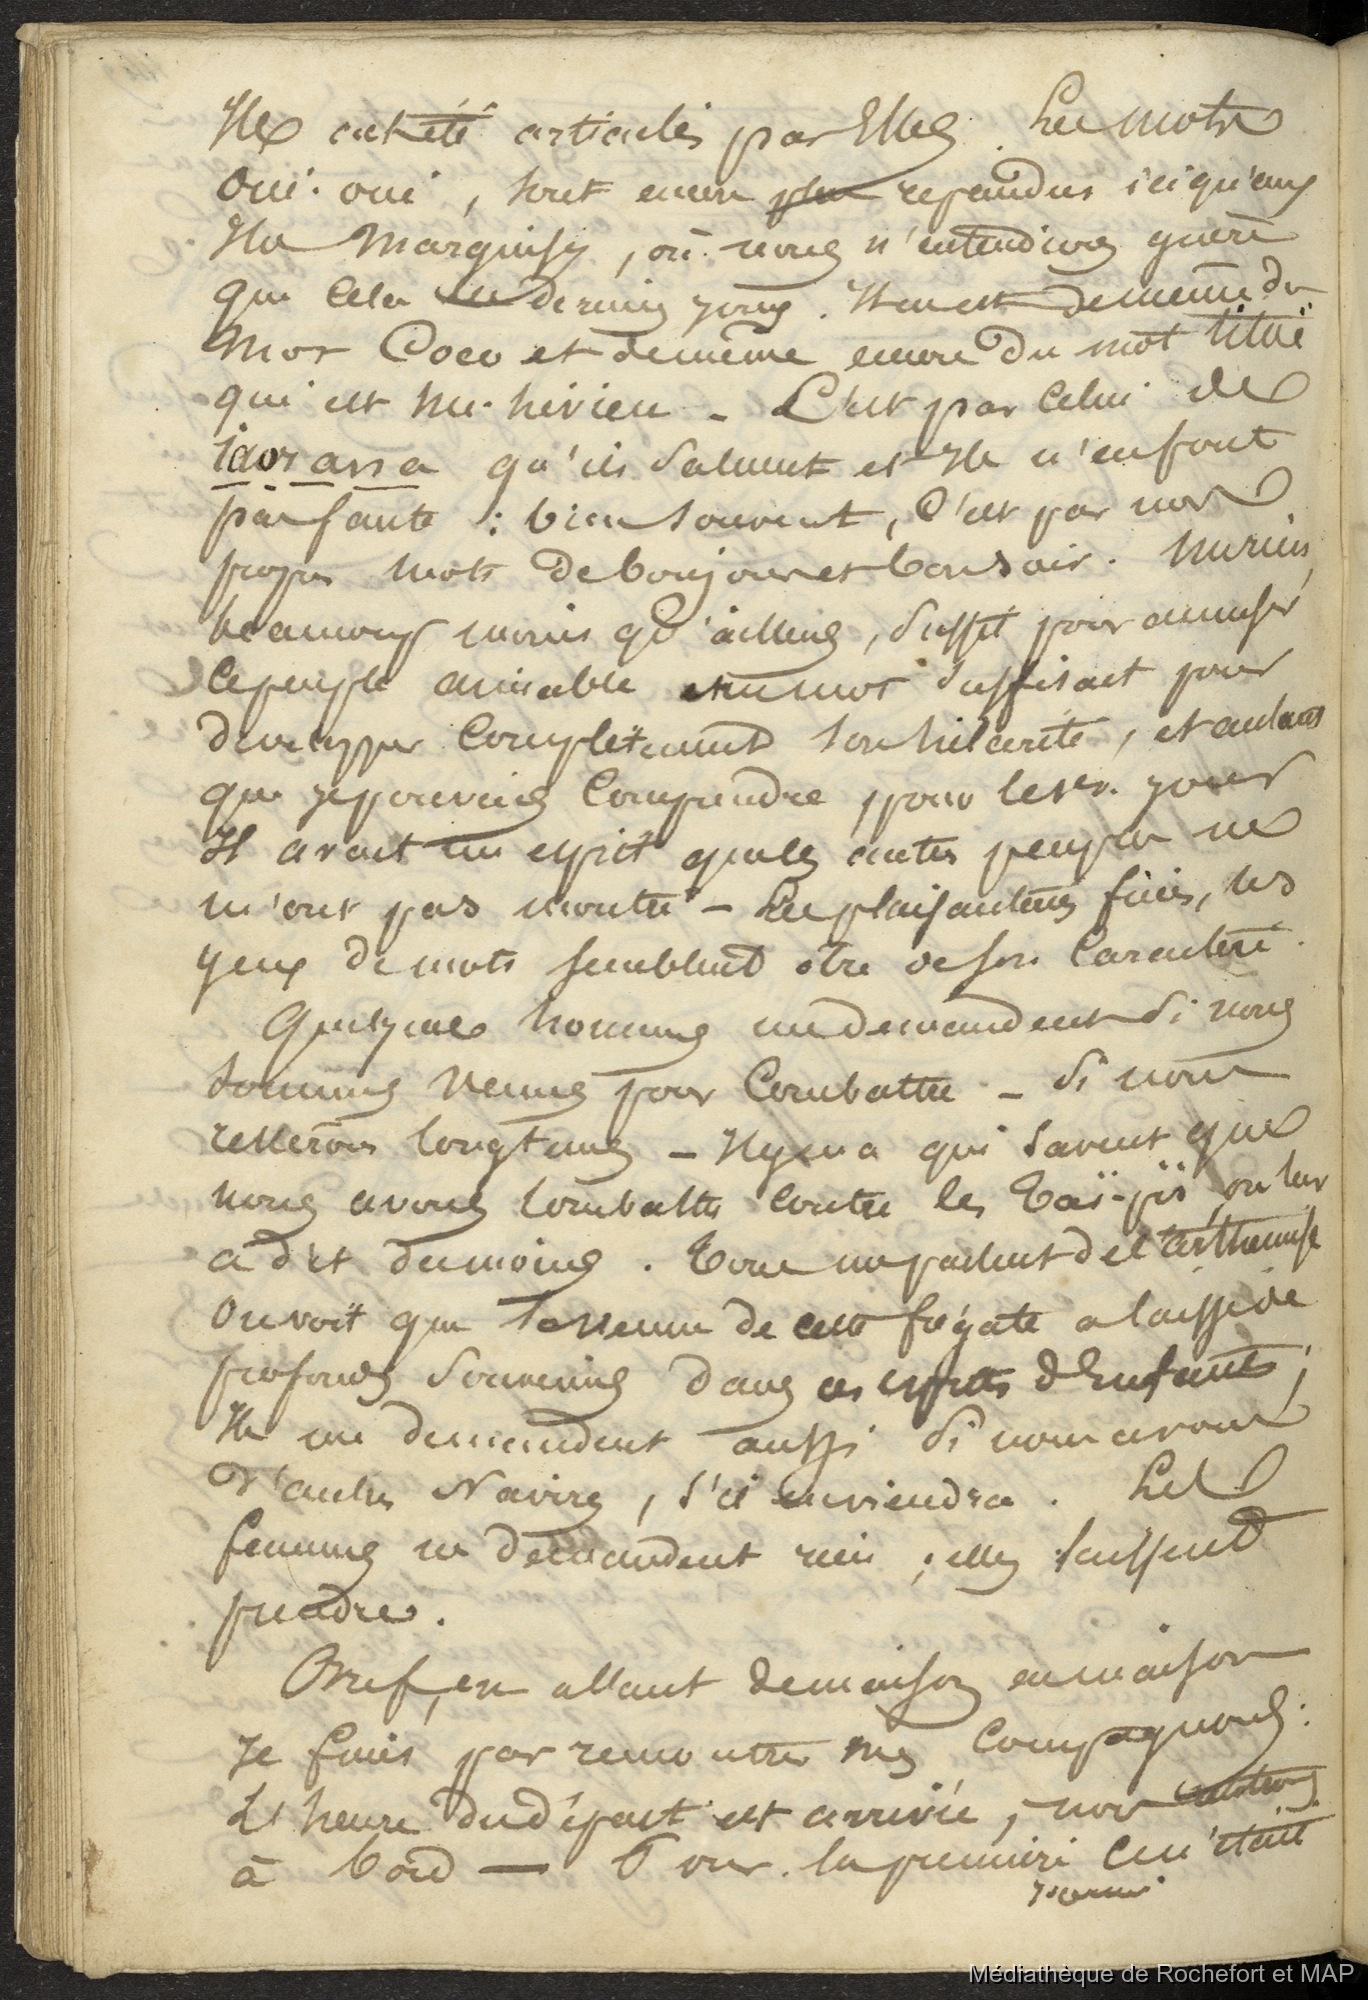 Ils ont été articulés par Elles. Les mots
oui. oui, sont encore plus repandus ici qu'aux
Iles Marquises, où nous n'entendions guère
que cela les derniers jours. Il en est de même du
Mot Coco et de même encore du mot titoï
qui est
iaorana qu'ils saluent et Ils n'en font
pas faute : bien souvent, C'est par nos
propres mots de bonjour et bonsoir. Un rien,
beaucoup moins qu'ailleurs, suffit pour amuser
ce peuple aimable et un mot suffisait pour
developper Complètement son hilarité, et autant
que je pouvais Comprendre, pour le 1er. jour
Il avait un esprit que les autres peuples ne
m'ont pas montré - Les plaisanteries fines, les
jeux de mots semblent être de son Caractère.
Quelques hommes me demandent si nous
sommes venus pour Combattre - si nous
resterons longtemps - Il y en a qui savent que
nous avons combattu contre les Taï-pïs, on leur
a dit du moins. Tous me parlent de l'arthemise
On voit que la venue de cette frégate a laissé de
profonds souvenirs dans ces esprits d'Enfants;
Ils me demandent aussi si nous avons
d'autres Navires, s'il en viendra. Les
femmes ne demandent rien ; elles laissent
prendre.
Bref, en allant de maison en maison
Je finis par rencontrer mes Compagnons.
L'heure du départ est arrivée, nous rentrons
à bord — Pour la première Ce n'était